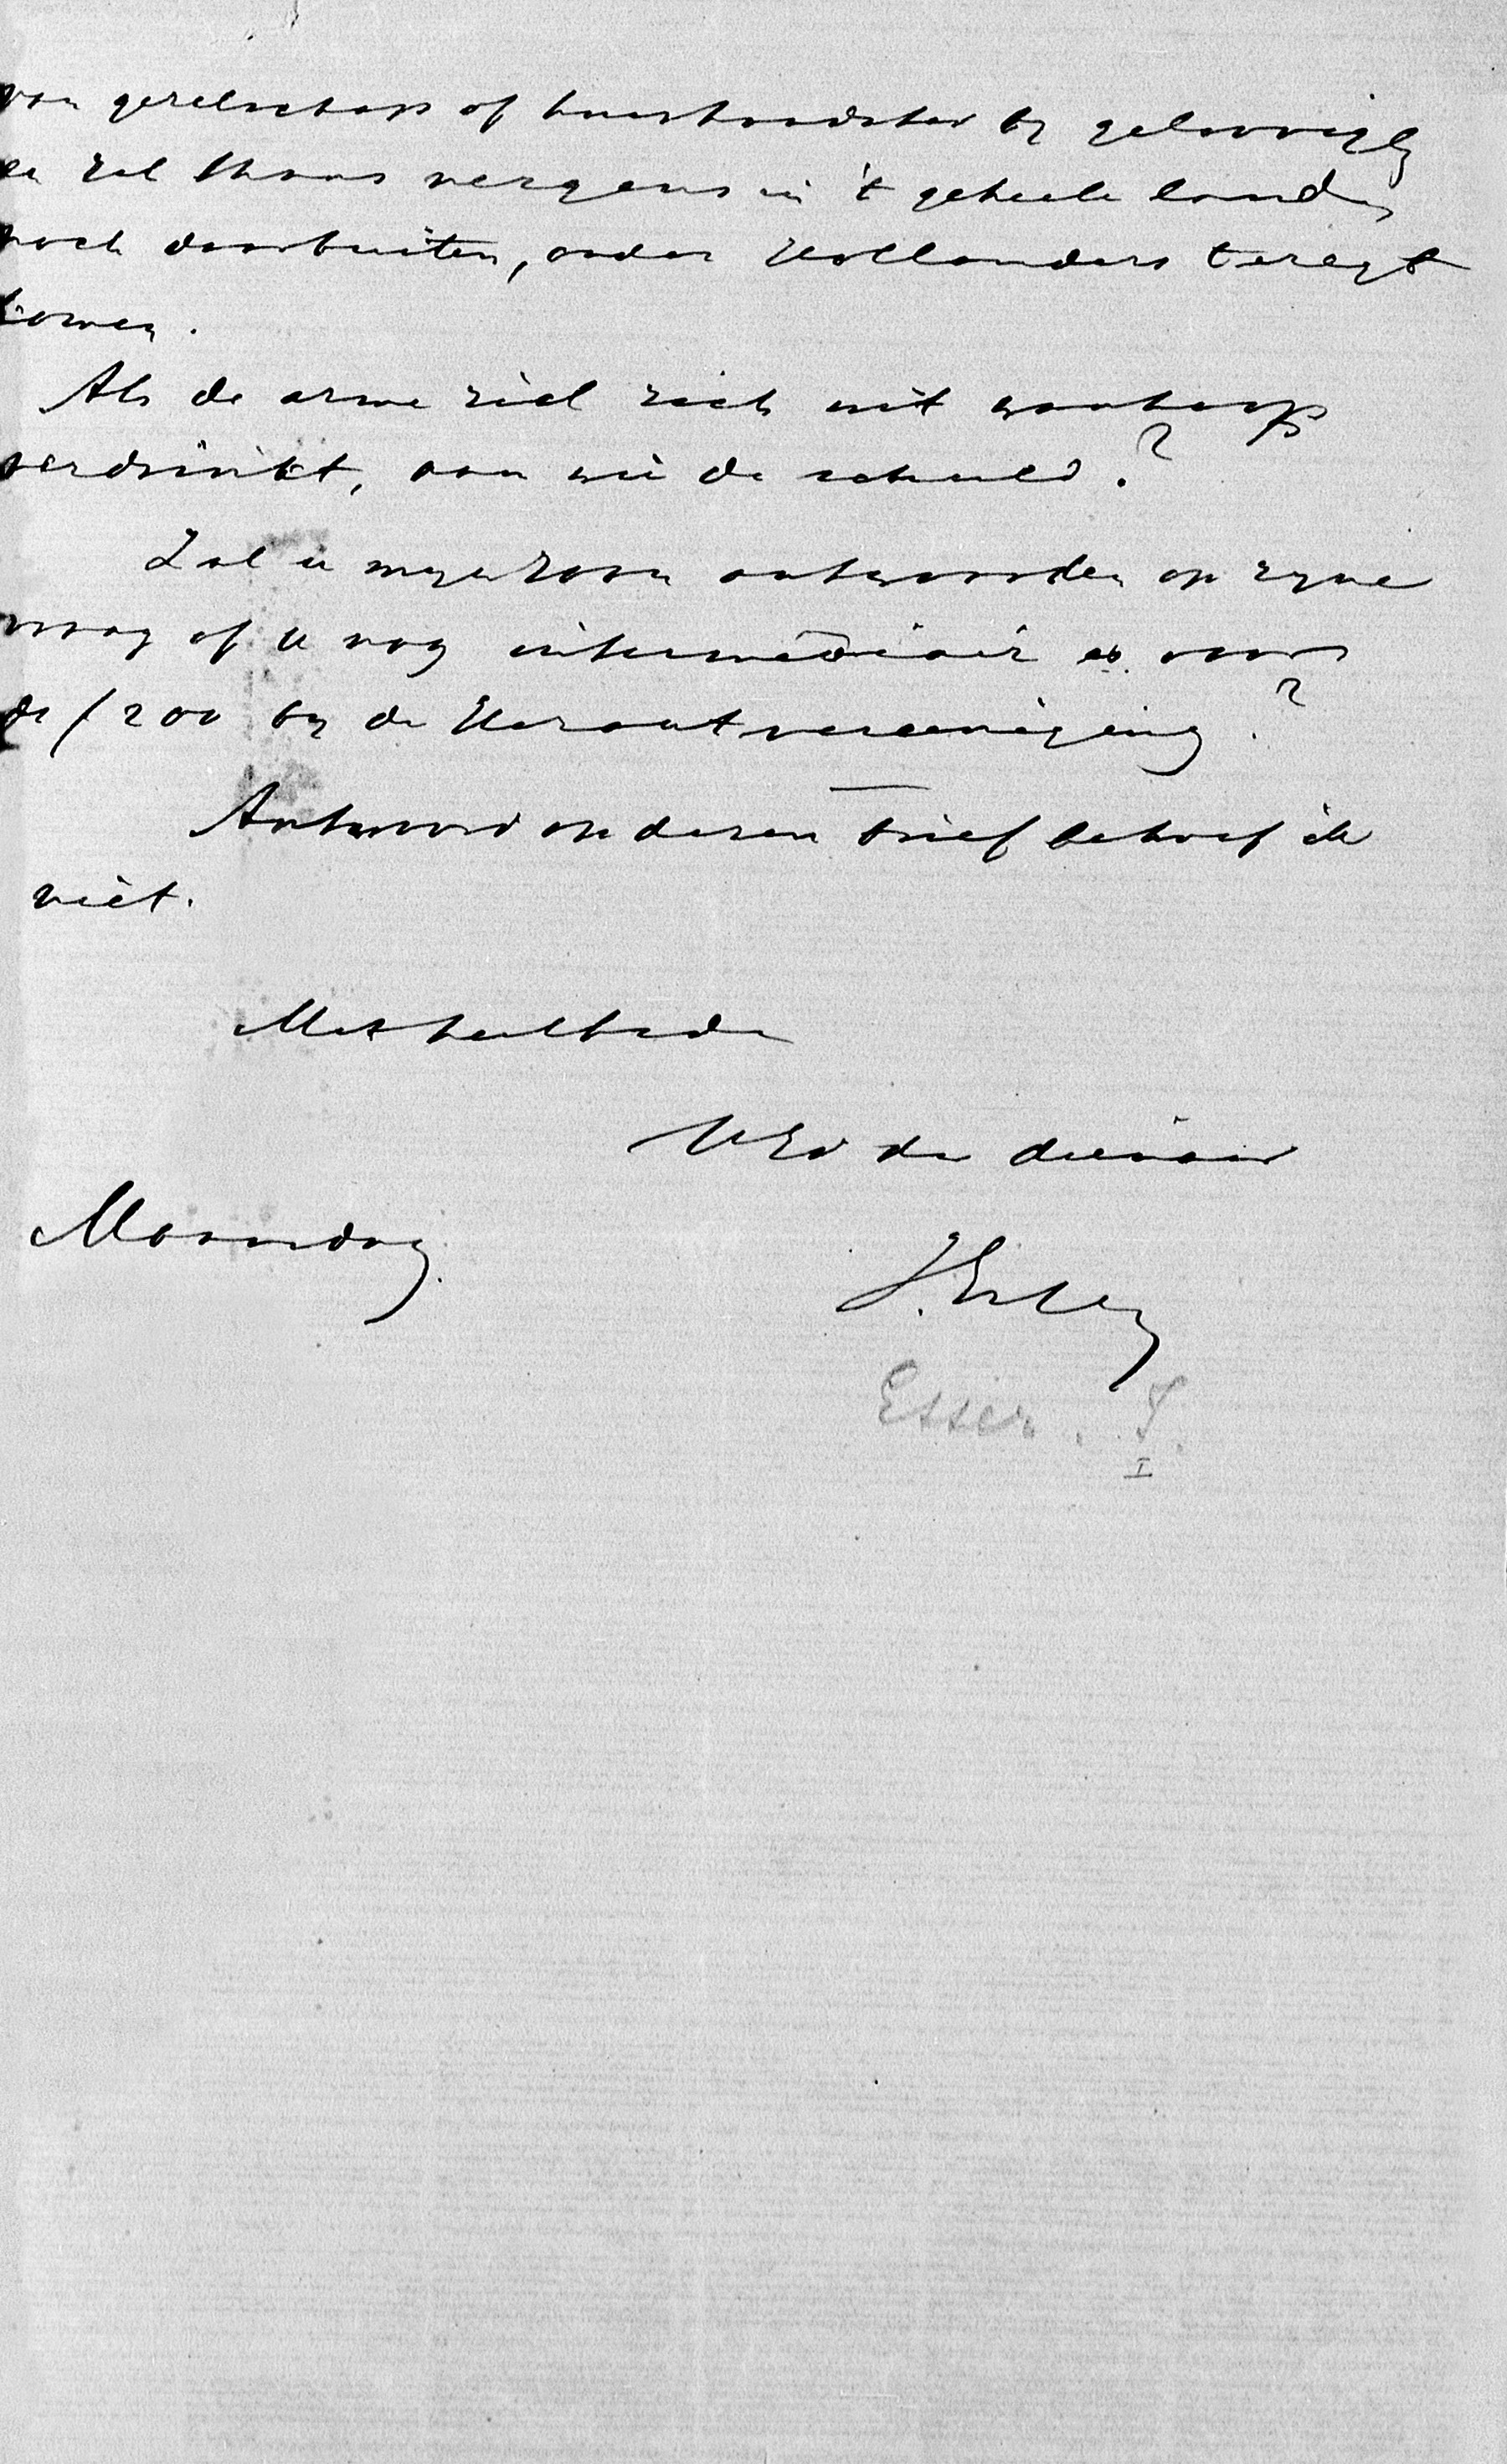 van gezelschap of huishoudster by geloovigen
en zal thans nergens in 't geheele land,
noch daarbuiten, onder Hollanders teregt
komen.
Als de arme ziel zich uit wanhoop
verdrinkt, aan wie de schuld?
Zal u myn zoon antwoorden op zyne
vraag of u nog intermediair is voor
de f 200 by de Herautvereeniging?
Antwoord op dezen brief behoef ik
niet.
Met heilbede
UEd dw dienaar
Maandag.
J. Esser
Esser. J.
I